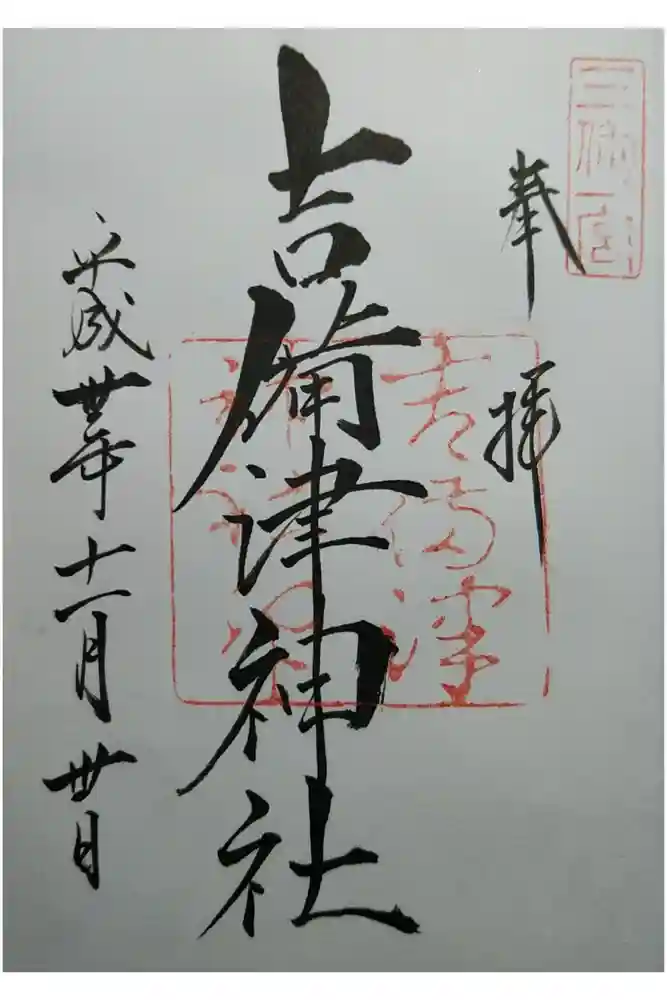 三備一宮
奉拝
吉備津神社
吉備津
平成丗年十一月丗日